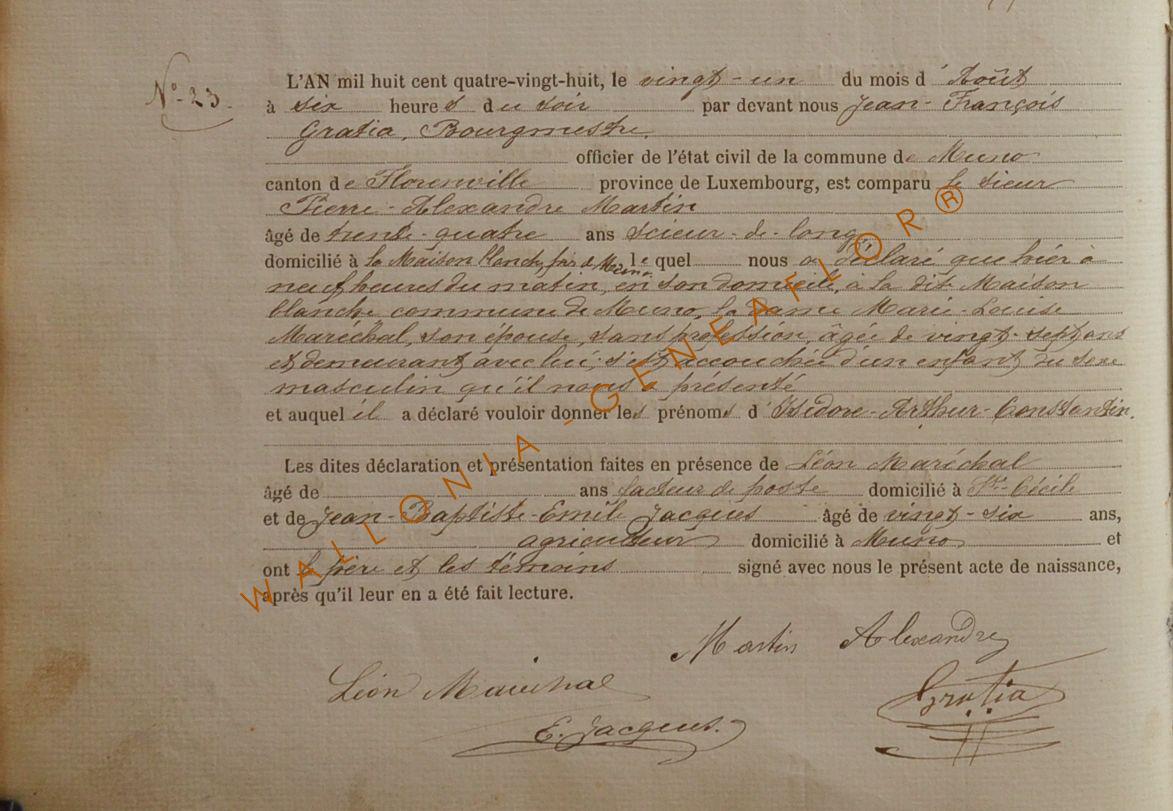 N° 23.
L'AN mil huit cent quatre-vingt-huit, le vingt-un du mois d'Août
à six heures du soir par devant nous Jean-François
Gratia, Bourgmestre,
officier de l'état civil de la commune de Muno
canton de Florenville province de Luxembourg, est comparu le sieur
Pierre-Alexandre Martin
âgé de trente-quatre ans scieur-de-long,
domicilié à la Maison blanche, de Muno, lequel nous a déclaré que hier à
neuf heures du matin, en son domicile, à la dite Maison
blanche commune de Muno, la Dame Marie-Louise
Maréchal, son épouse, sans profession, âgée de vingt-sept ans
et demeurant avec lui, s'est accouchée d'un enfant du sexe
masculin qu'il nous a présenté
et auquel il a déclaré vouloir donner les prénoms d'Isidore-Arthur-Constantin.
Les dites déclaration et présentation faites en présence de Léon Maréchal
âgé de ans facteur de poste domicilié à Ste Cécile
et de Jean-Baptiste-Emile Jacques âgé de vingt-six ans,
agriculteur domicilié à Muno et
ont le père et les témoins signé avec nous le présent acte de naissance,
après qu'il leur en a été fait lecture.
Martin Alexandre
Léon Maréchal
Gratia
E. Jacques.
WALLONIA-GENEAFLOR®